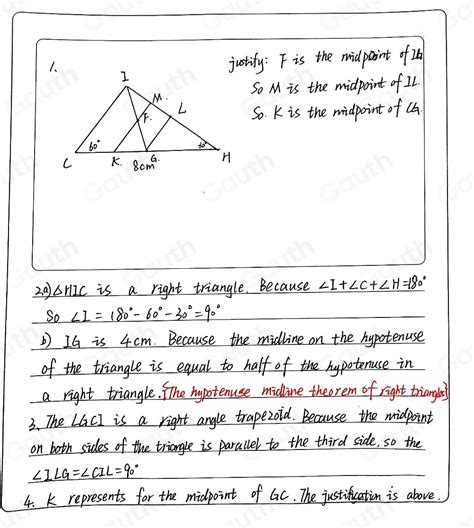 1.
justify: F is the midpoint of IG
So M is the midpoint of IL
So. K is the midpoint of CG.
I
M.
L
F.
60°
30°
C
K.
G.
H
8cm
2a) △HIC is a right triangle. Because ∠I+∠C+∠H=180°
So ∠I = 180°-60°-30°=90°
b) IG is 4cm. Because the midline on the hypotenuse
of the triangle is equal to half of the hypotenuse in
a right triangle. {The hypotenuse midline theorem of right triangles}
3. The LGCI is a right angle trapezoid. Because the midpoint
on both sides of the triangle is parallel to the third side, so the
∠ILG=∠CIL=90°
4. K represents for the midpoint of GC. The justification is above.
Gauth